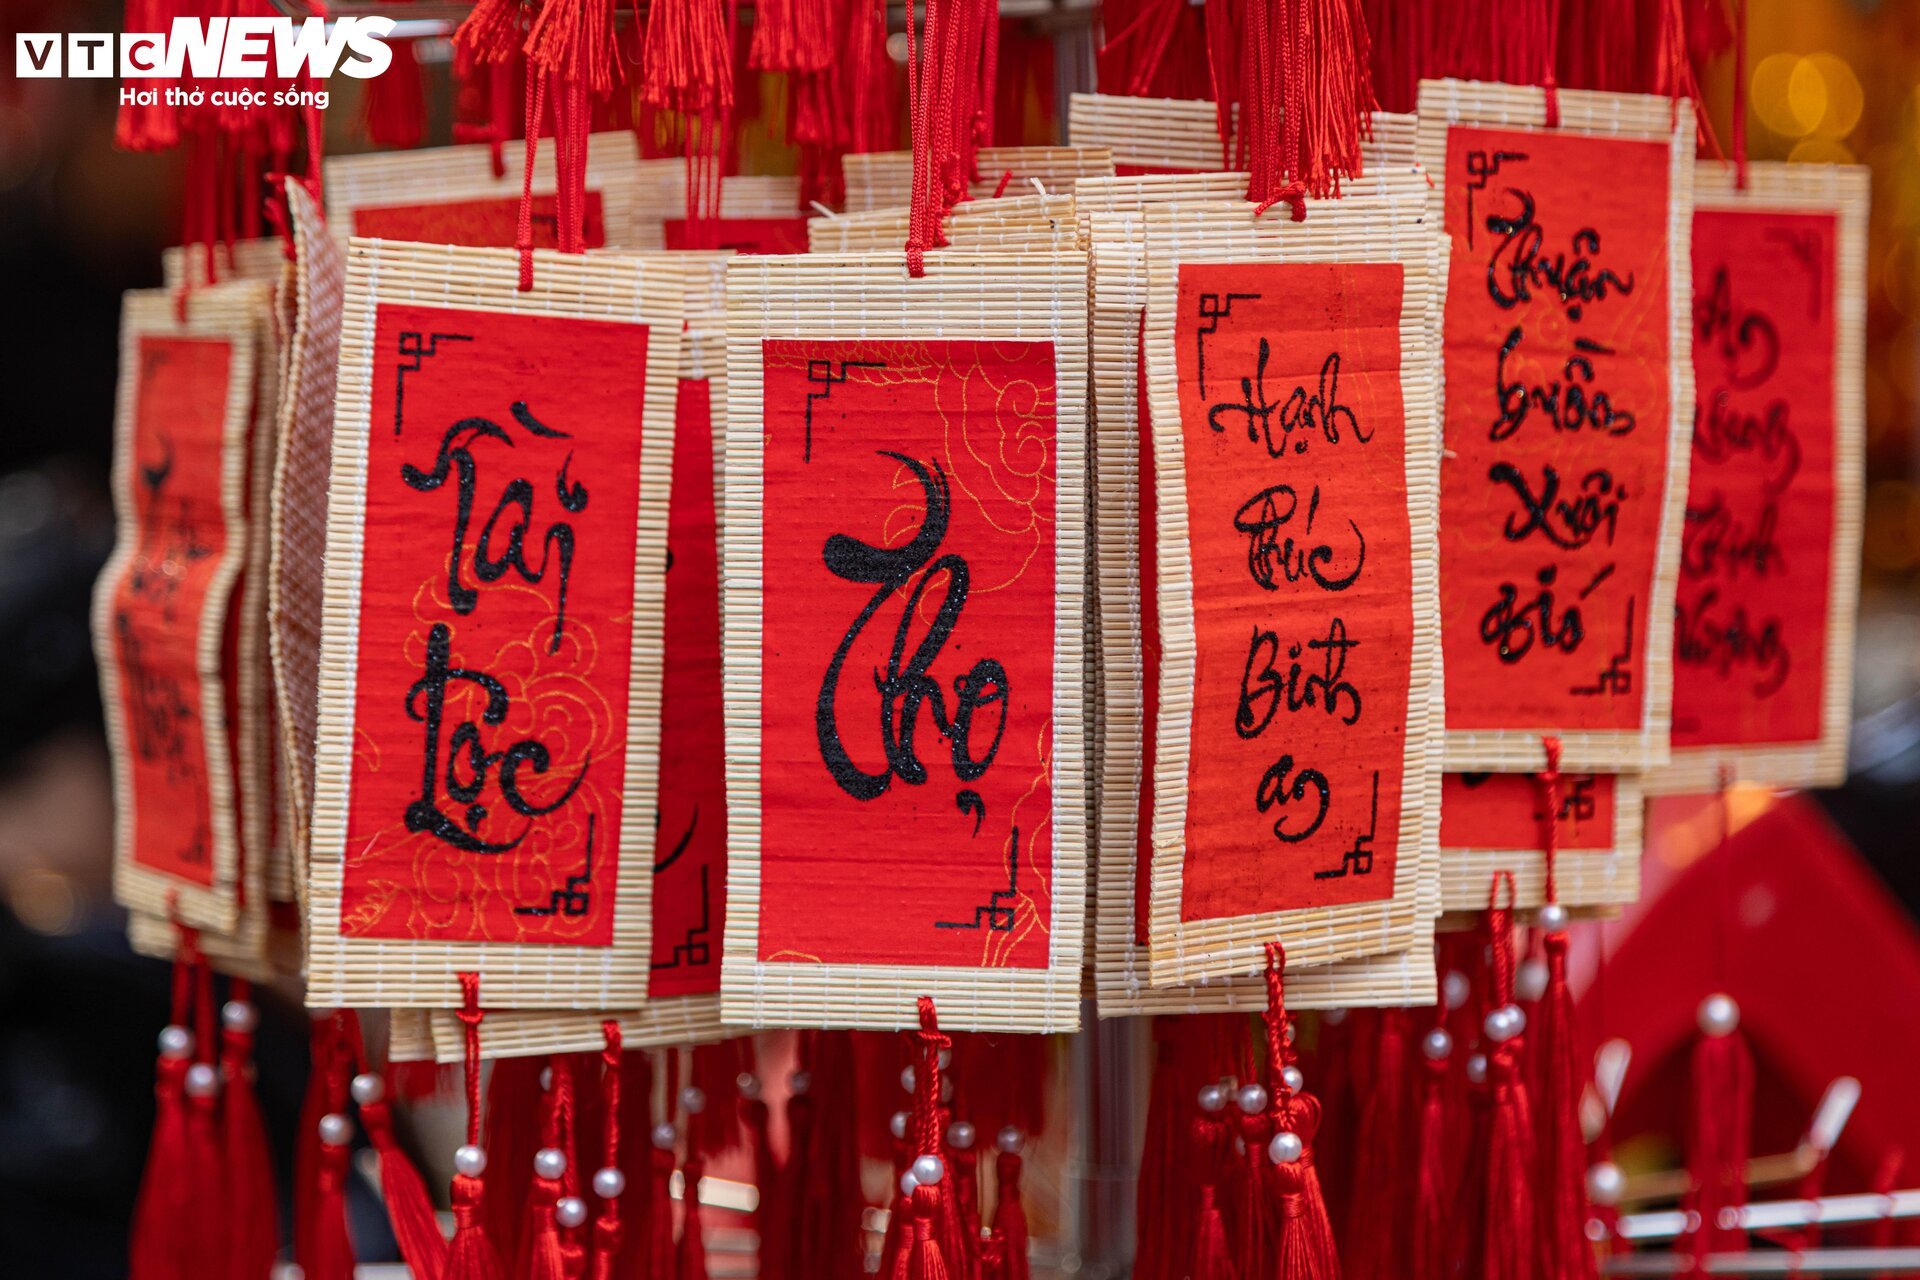 VTC NEWS
Hơi thở cuộc sống
Tài
Lộc
Thọ
Hạnh
Phúc
Bình
an
Thuận
buồm
Xuôi
gió
An
Khang
Thịnh
Vượng